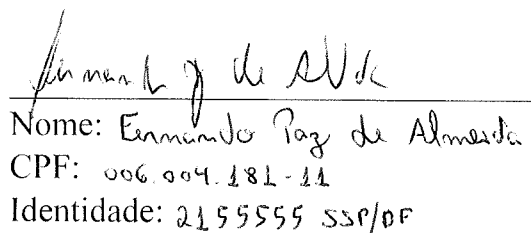 Nome: Fernando Paz de Almeida
CPF: 006.004.181-11
Identidade: 2155555 SSP/DF